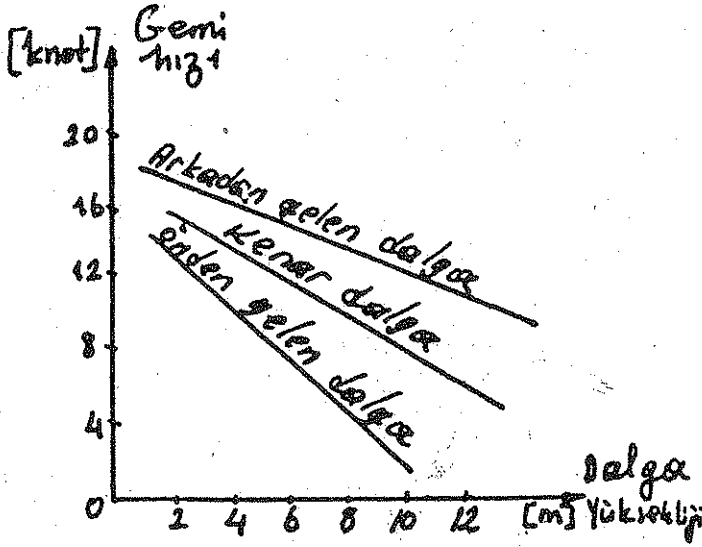 [knot] Gemi
hızı
20
16
12
8
4
0
Arkadan gelen dalga
Kenar dalga
önden gelen dalga
2 4 6 8 10 12 [m] Dalga
Yüksekliği